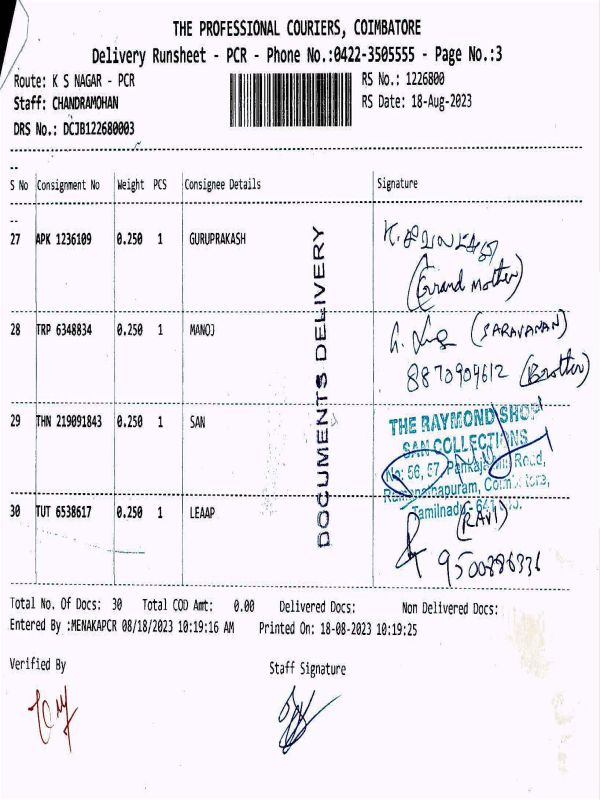 THE PROFESSIONAL COURIERS, COIMBATORE
Delivery Runsheet - PCR - Phone No.:0422-3505555 - Page No.:3
Route: K S NAGAR - PCR
RS No.: 1226800
Staff: CHANDRAMOHAN
RS Date: 18-Aug-2023
DRS No.: DCJB122680003
S No Consignment No Weight PCS Consignee Details Signature
27 APK 1236109 0.250 1 GURUPRAKASH
(Grand mother)
28 TRP 6348834 0.250 1 MANOJ
(SARAVANAN)
8870909612 (Brother)
29 THN 219091843 0.250 1 SAN
THE RAYMOND SHOP
SAN COLLECTIONS
No: 56, 57, Road,
Tamilnadu
30 TUT 6538617 0.250 1 LEAAP
(RAVI)
9500886336
DOCUMENTS DELIVERY
Total No. Of Docs: 30 Total COD Amt: 0.00 Delivered Docs: Non Delivered Docs:
Entered By :MENAKAPCR 08/18/2023 10:19:16 AM Printed On: 18-08-2023 10:19:25
Verified By
Staff Signature